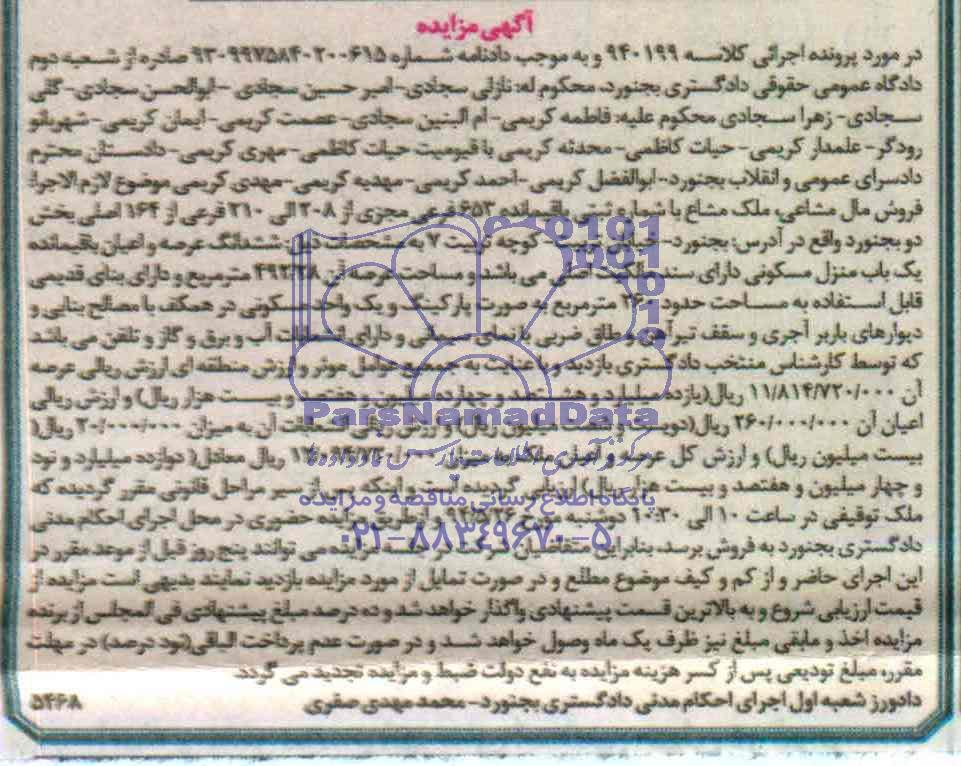 آگهی مزایده
در مورد پرونده اجرائی کلاسه ۹۴۰۱۹۹ و به موجب دادنامه شماره ۹۳۰۹۹۷۵۸۴۰۲۰۰۶۱۵ صادره از شعبه دوم
دادگاه عمومی حقوقی دادگستری بجنورد، محکوم له: نازلی سجادی- امیر حسین سجادی -ابوالحسن سجادی- گلی
سجادی- زهرا سجادی محکوم علیه: فاطمه کریمی- ام البنین سجادی- عصمت کریمی- ایمان کریمی- شهربانو
رودگر- علمدار کریمی- حیات کاظمی- محدثه کریمی با قیومیت حیات کاظمی- مهری کریمی- دادستان محترم
دادسرای عمومی و انقلاب بجنورد- ابوالفضل کریمی- احمد کریمی- مهدیه کریمی- مهدی کریمی موضوع لازم الاجرا:
فروش مال مشاعی، ملک مشاع با شماره ثبتی باقیمانده ۶۵۳ فرعی مجزی از ۲۰۸ الی ۲۱۰ فرعی از ۱۶۴ اصلی بخش
دو بجنورد واقع در آدرس: بجنورد- خیابان کوچه تربت ۷ به مشخصات ذیل: ششدانگ عرصه و اعیان باقیمانده
یک باب منزل مسکونی دارای سند مالکیت اصلی می باشد و مساحت عرصه آن ۴۹۲/۲۸ مترمربع و دارای بنای قدیمی
قابل استفاده به مساحت حدود ۲۶۰ مترمربع به صورت پارکینگ و یک واحد مسکونی در همکف با مصالح بنایی و
دیوارهای باربر آجری و سقف تیرآهن و طاق ضربی با نمای سیمانی و دارای انشعابات آب و برق و گاز و تلفن می باشد
که توسط کارشناس منتخب دادگستری بازدید و با عنایت به جمیع عوامل موثر و ارزش منطقه ای ارزش ریالی عرصه
آن ۱۱/۸۱۴/۷۲۰/۰۰۰ ریال(یازده میلیارد و هشتصد و چهارده میلیون و هفتصد و بیست هزار ریال) و ارزش ریالی
اعیان آن ۲۶۰/۰۰۰/۰۰۰ ریال(دویست و شصت میلیون ریال) و ارزش ریالی انشعابات آن به میزان ۲۰/۰۰۰/۰۰۰ ریال(
بیست میلیون ریال) و ارزش کل عرصه و اعیان ملک به میزان ۱۲/۰۹۴/۷۲۰/۰۰۰ ریال معادل( دوازده میلیارد و نود
و چهار میلیون و هفتصد و بیست هزار ریال) ارزیابی گردیده است و اینکه پس از سیر مراحل قانونی مقرر گردیده که
ملک توقیفی در ساعت ۱۰ الی ۱۰:۳۰ دوشنبه مورخ از طریق مزایده حضوری در محل اجرای احکام مدنی
دادگستری بجنورد به فروش برسد، بنابراین متقاضیان شرکت در جلسه مزایده می توانند پنج روز قبل از موعد مقرر در
این اجرای حاضر و از کم و کیف موضوع مطلع و در صورت تمایل از مورد مزایده بازدید نمایند بدیهی است مزایده از
قیمت ارزیابی شروع و به بالاترین قسمت پیشنهادی واگذار خواهد شد و ده درصد مبلغ پیشنهادی فی المجلس از برنده
مزایده اخذ و مابقی مبلغ نیز ظرف یک ماه وصول خواهد شد و در صورت عدم پرداخت الباقی(نود درصد) در مهلت
مقرر، مبلغ تودیعی پس از کسر هزینه مزایده به نفع دولت ضبط و مزایده تجدید می گردد.
دادورز شعبه اول اجرای احکام مدنی دادگستری بجنورد- محمد مهدی صفری
۵۴۶۸
ParsNamadData
پایگاه اطلاع رسانی مناقصه و مزایده
۰۲۱-۸۸۳۴۹۶۷۰-۵